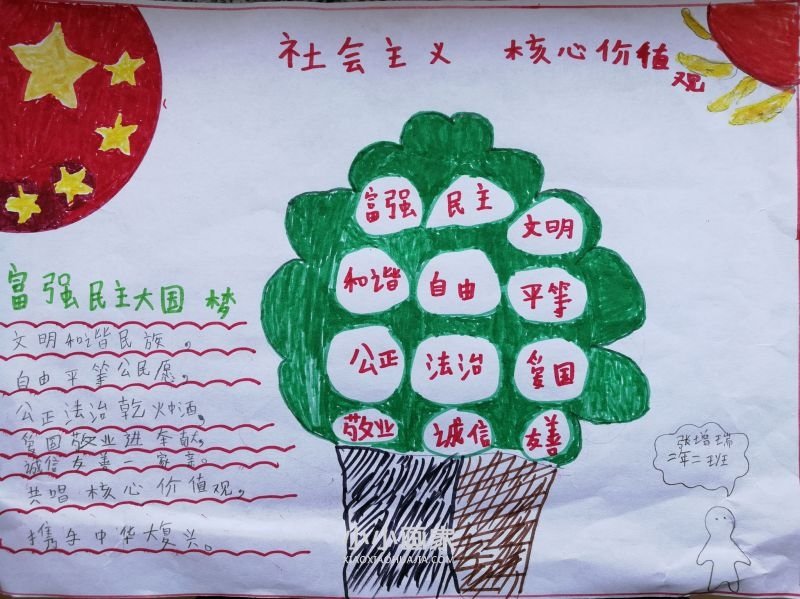 社会主义 核心价值观
富强 民主 文明
和谐 自由 平等
公正 法治 爱国
敬业 诚信 友善
富强民主大国梦
文明和谐民族。
自由平等公民愿。
公正法治乾坤洒。
爱国敬业班奉献。
诚信友善一家亲。
共唱核心价值观。
携手中华大复兴。
张增瑞
二年二班
小小画家
XIAOXIAOHUAJIA.COM